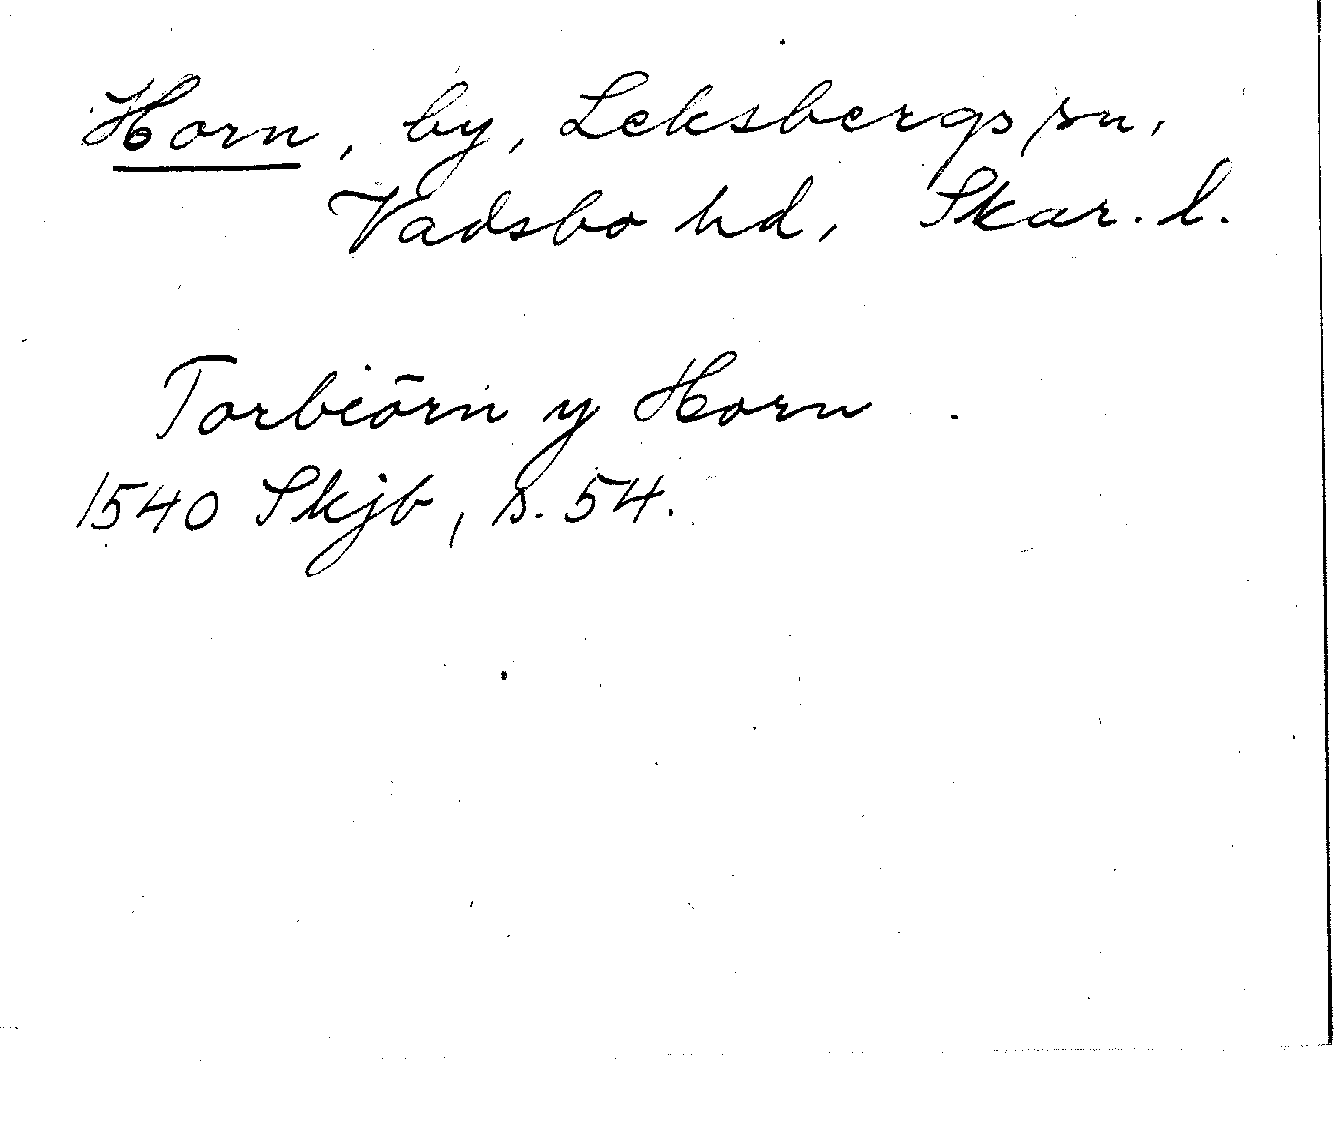 Horn, by, Leksbergs sn,
Vadsbo hd, Skar. l.
Torbiörn y Horn.
1540 Skjb, s. 54.